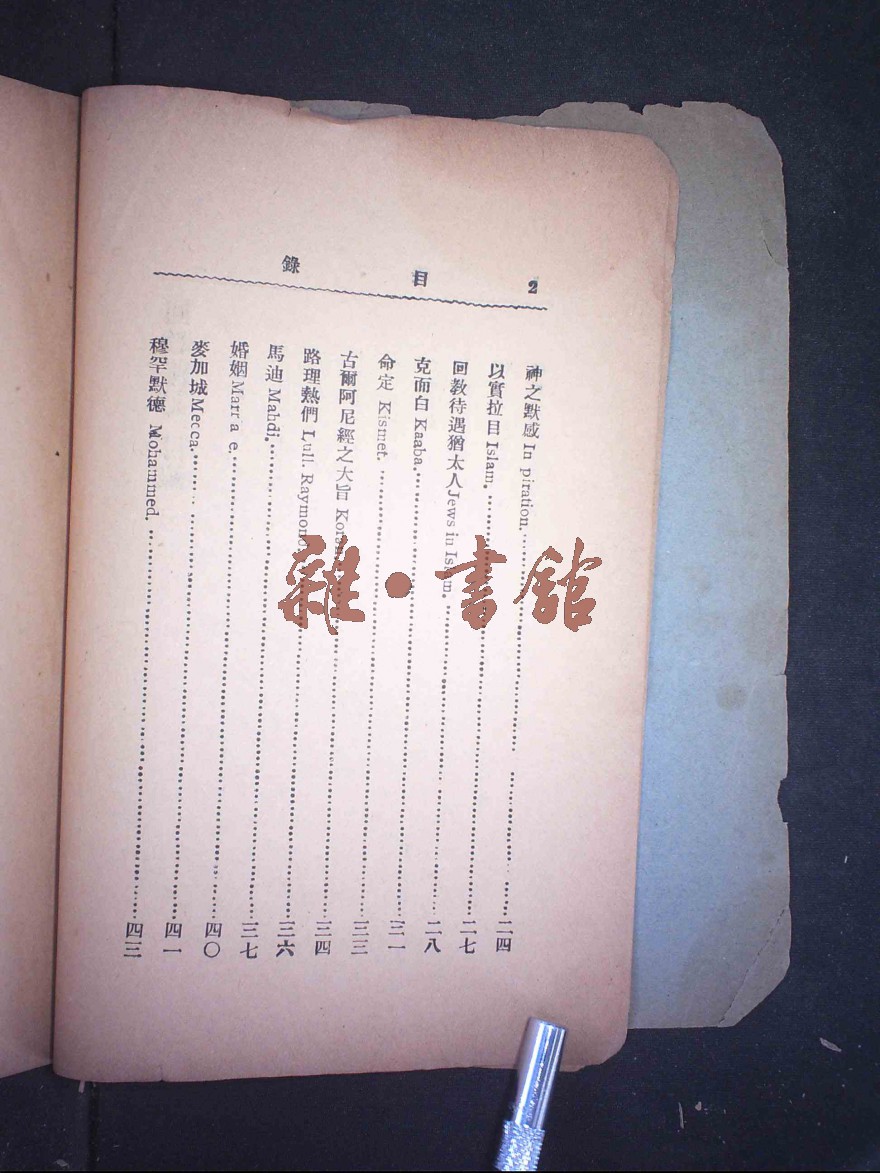 2 目錄
神之默感 In piration. 二四
以實拉目 Islam. 二七
回教待遇猶太人 Jews in Islam. 二八
克而白 Kaaba. 三一
命定 Kismet. 三三
古爾阿尼經之大旨 三四
路理熱們 Lull. Raymond 三六
馬迪 Mahdi. 三七
婚姻 Marr a e. 四〇
麥加城 Mecca. 四一
穆罕默德 Mohammed. 四三
雜·書館